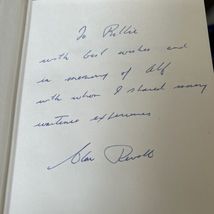 To Rullie
with best wishes and
in memory of Alf
with whom I shared many
wartime experiences
Alan